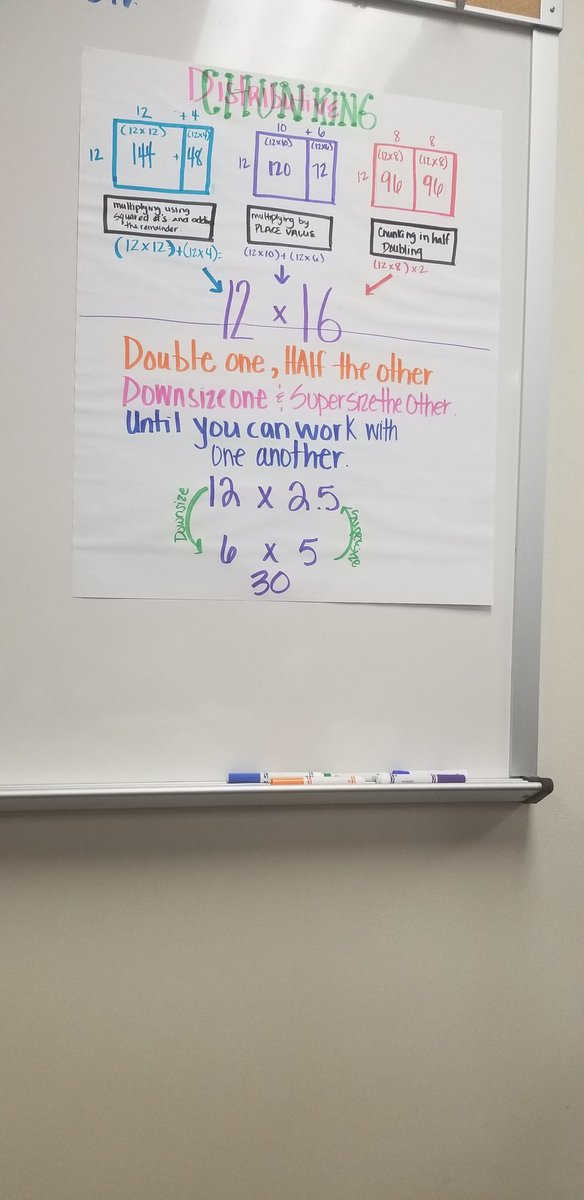 Distributive
CHUNKING
12 + 4
(12x12) (12x4)
12 144 + 48
multiplying using
squared #'s and adding
the remainder.
(12x12)+(12x4)=
10 + 6
(12x10) (12x6)
12 120 72
multiplying by
PLACE VALUE
(12x10)+(12x6)
8 8
(12x8) (12x8)
12 96 96
Chunking in half
Doubling
(12x8)x2
12 x 16
Double one, HAlf the other
Downsize one & Supersize the Other.
Until you can work with
one another.
12 x 2.5
Downsize
6 x 5
30